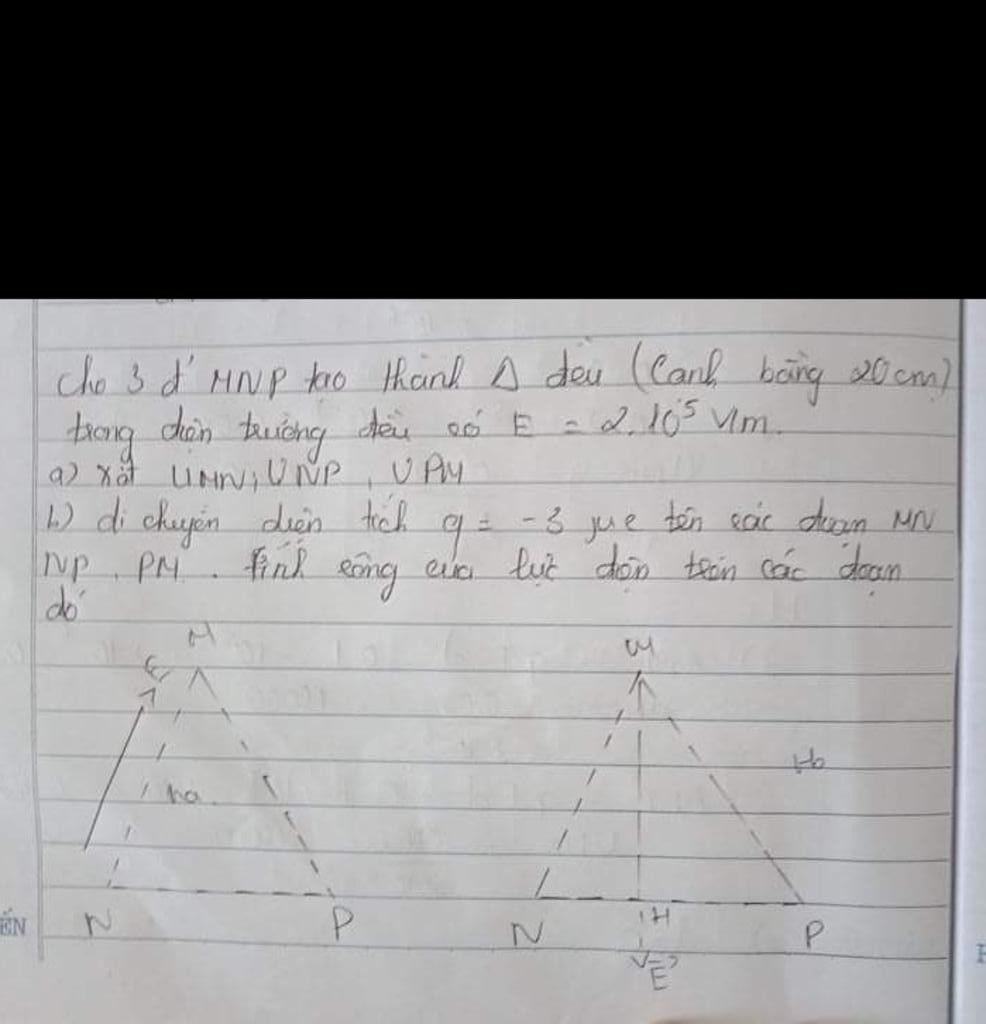 Cho 3 đ' MNP tạo thành Δ đều (Cạnh bằng 20cm)
trong điện trường đều có E = 2.10⁵ V/m.
a) xđ UMN, UNP, UPM
b) di chuyển điện tích q = -3 μc trên các đoạn MN
NP, PM. Tính công của lực điện trên các đoạn
đó
M M
E
Ha. Hb
N P N H P
E
ẾN